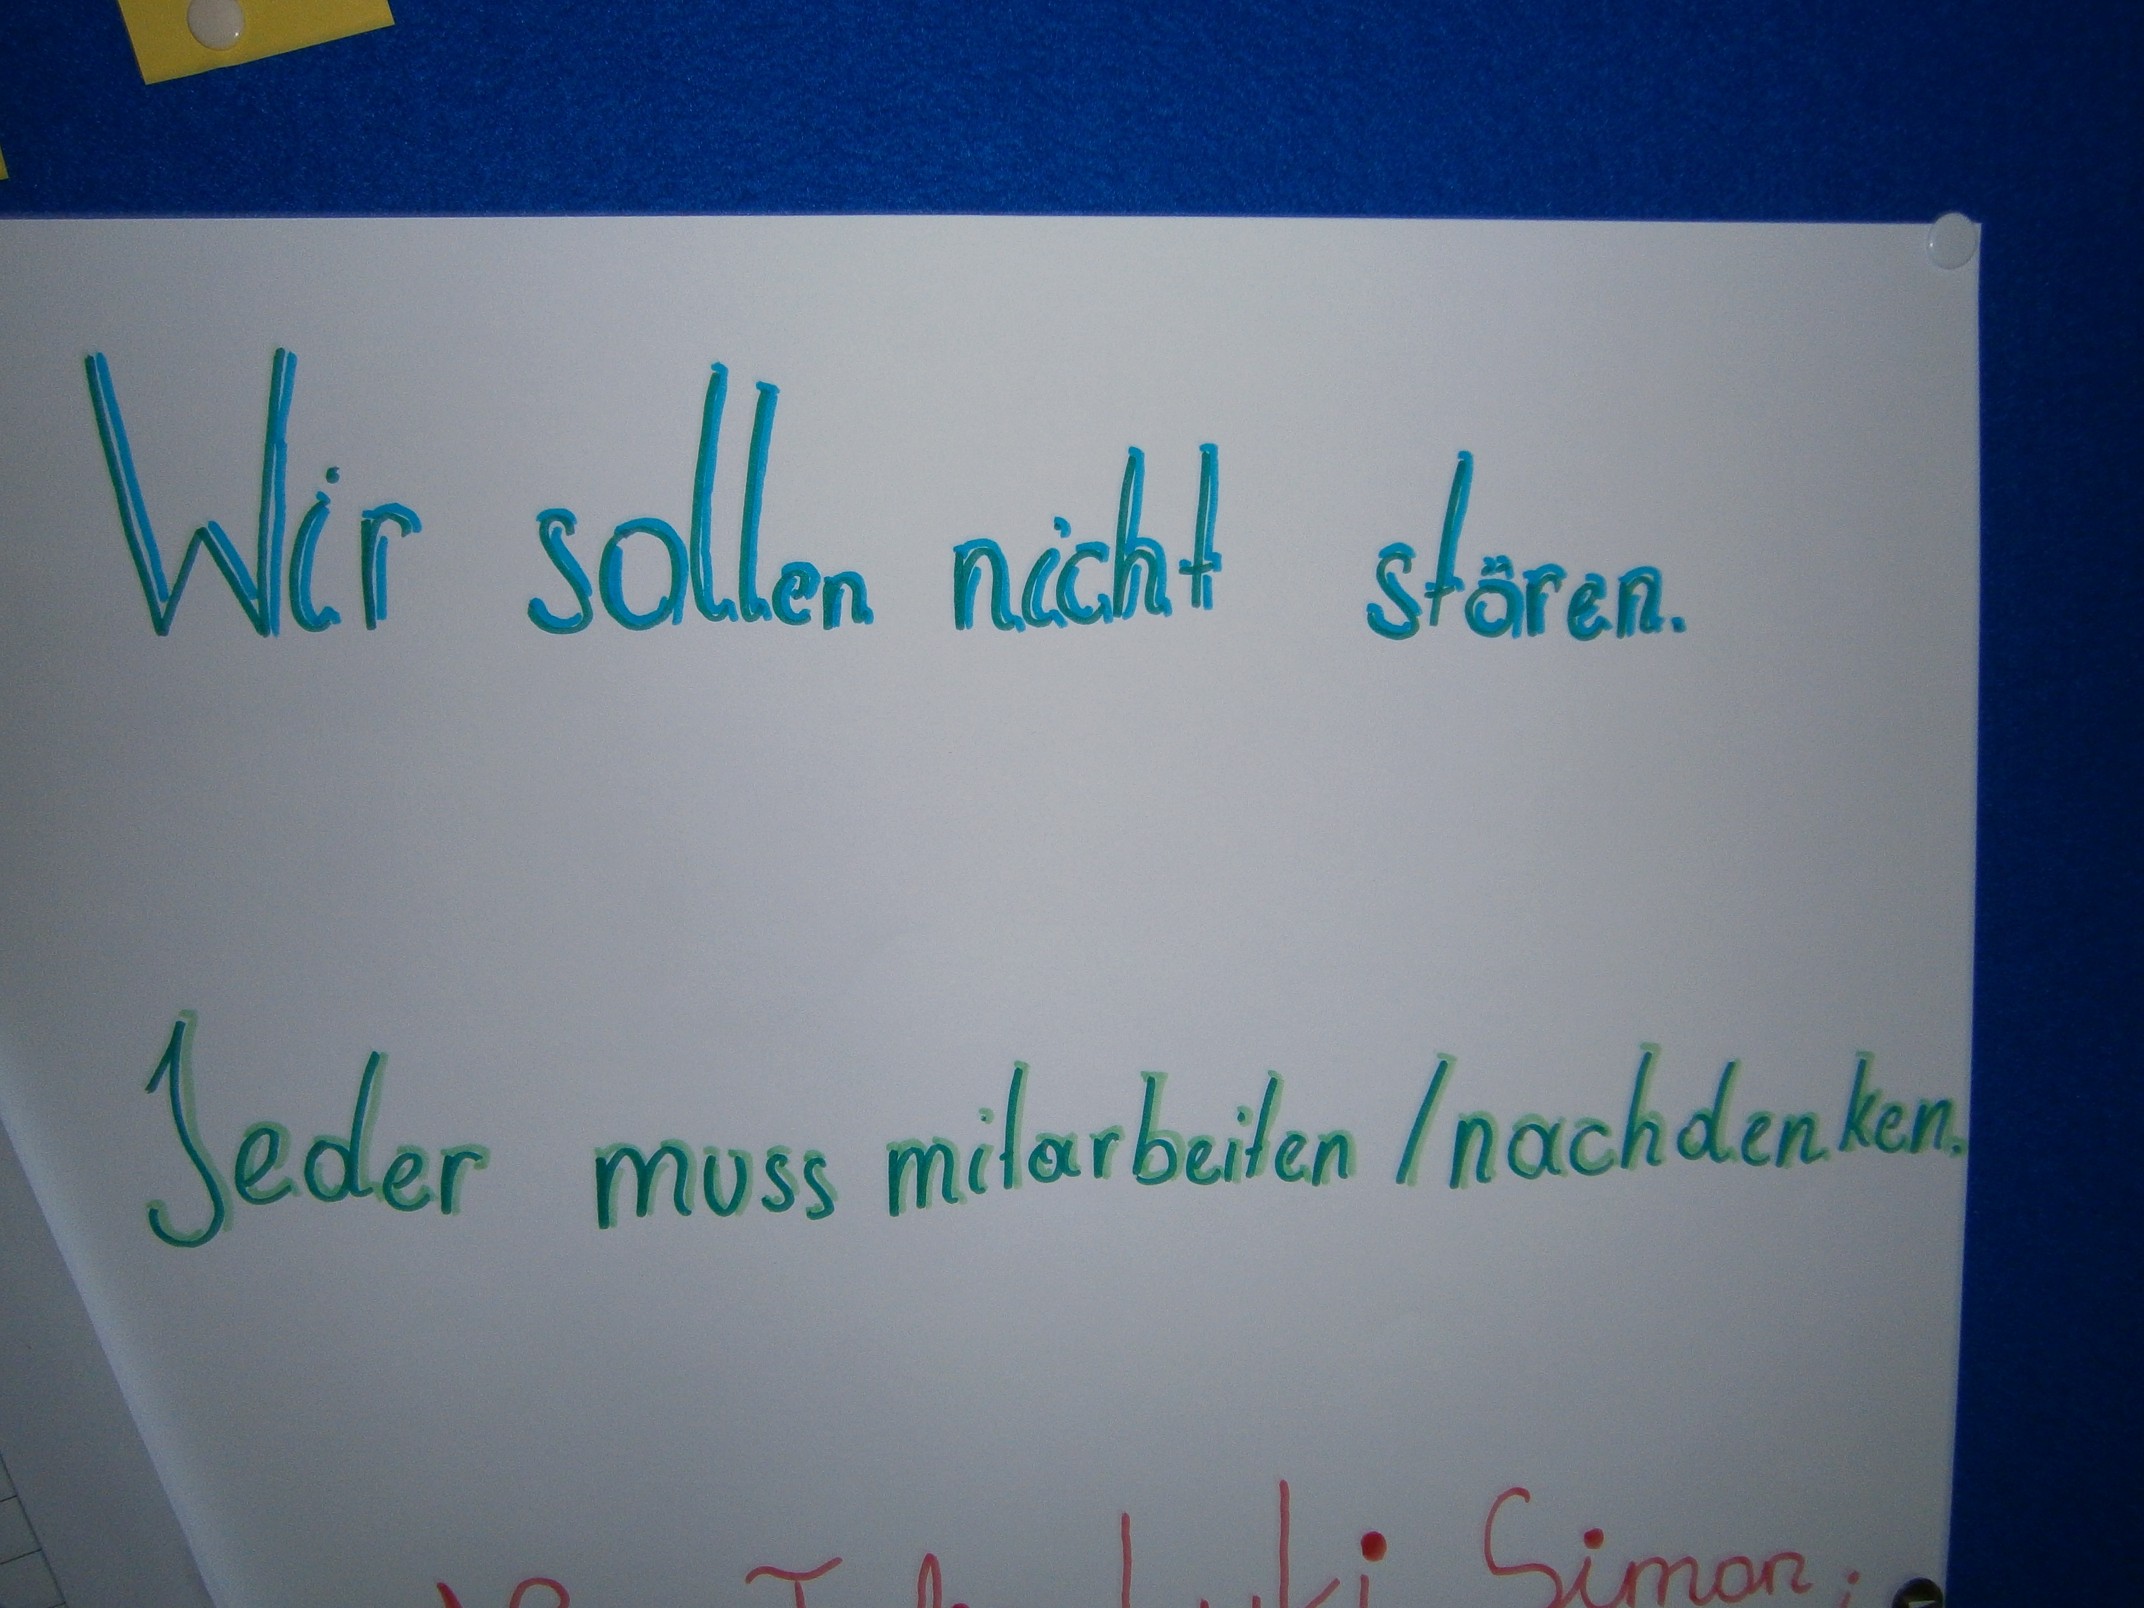 Wir sollen nicht stören.
Jeder muss mitarbeiten / nachdenken.
Luki Simon,